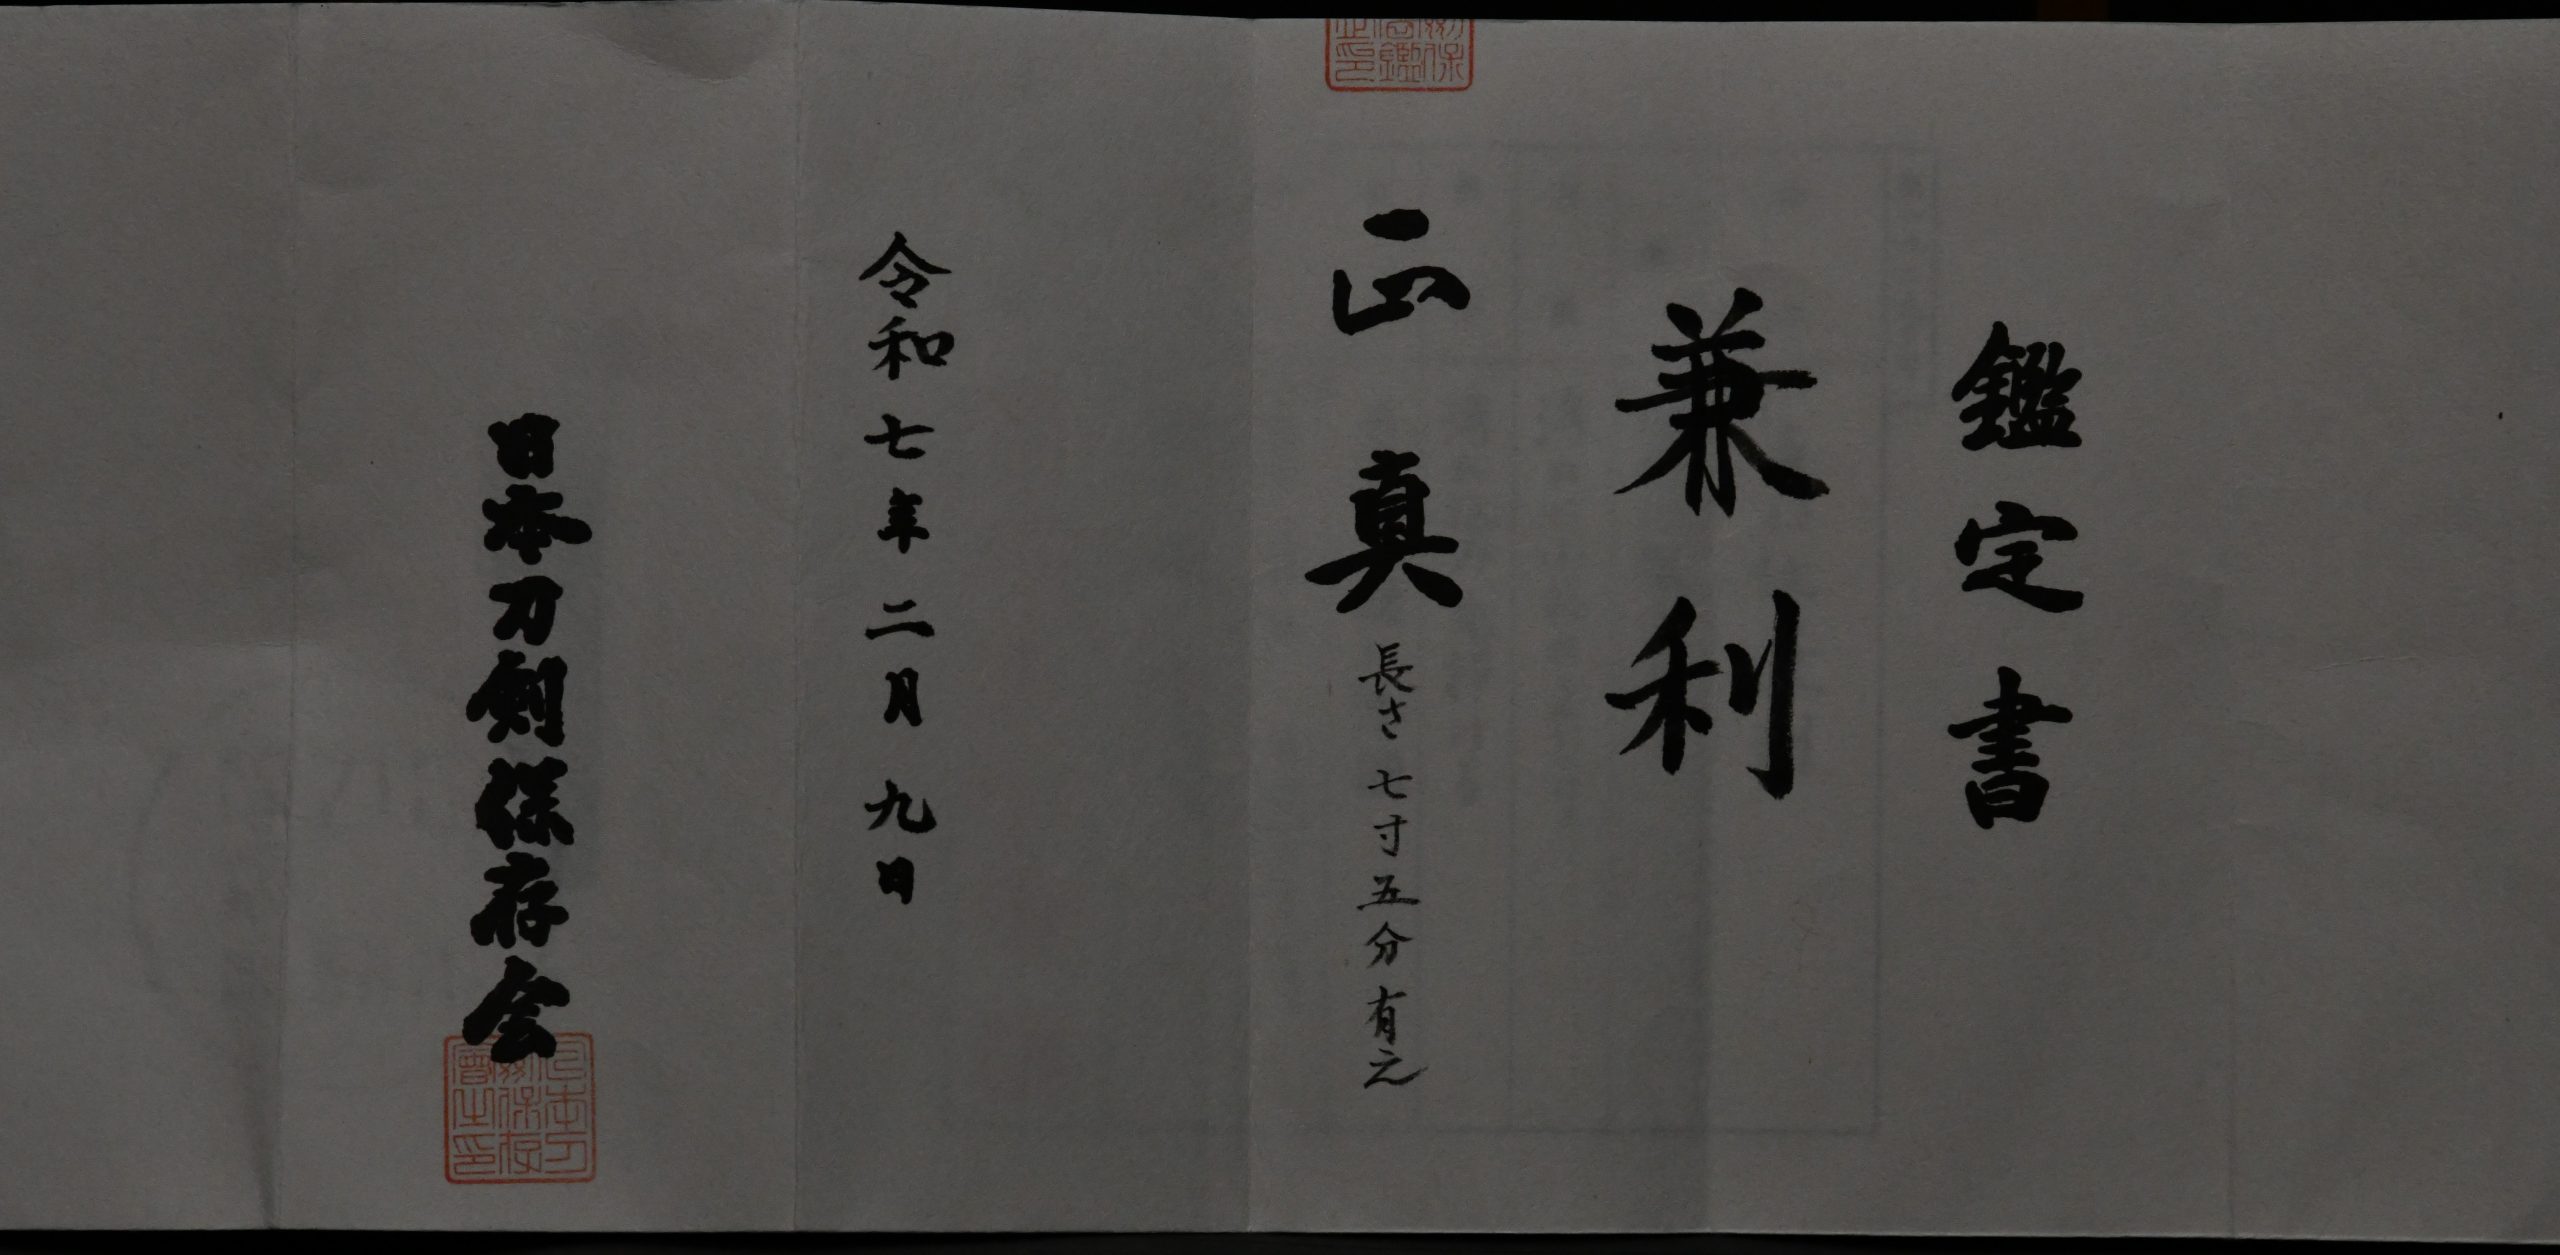 鑑定書
兼利
正真
長さ七寸五分有之
令和七年二月九日
日本刀剣保存会